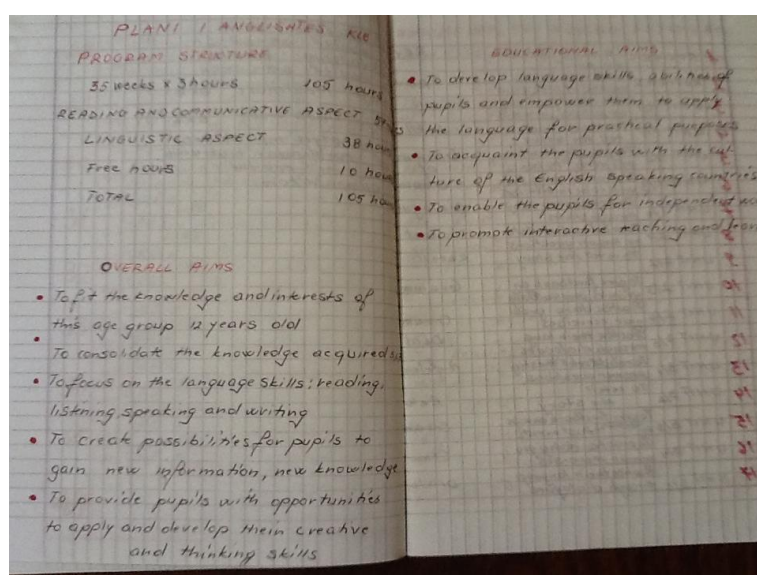 PLANI I ANGLISHTES KLE
PROGRAM STRUKTURE
35 weeks x 3 hours 105 hours
READING AND COMMUNICATIVE ASPECT
LINGUISTIC ASPECT 38 hou
Free hours 10 hou
TOTAL 105 ho
OVERALL AIMS
• To fit the knowledge and interests of
this age group 12 years old
• To consolidate the knowledge acquired
• To focus on the language skills; reading,
listening, speaking and writing
• To create possibilities for pupils to
gain new information, new knowledge
• To provide pupils with opportunities
to apply and develop their creative
and thinking skills
EDUCATIONAL AIMS
• To develop language skills, abilities of
pupils and empower them to apply
the language for practical purposes
• To acquaint the pupils with the cul-
ture of the English speaking countries
• To enable the pupils for independent wo
• To promote interactive teaching and lear